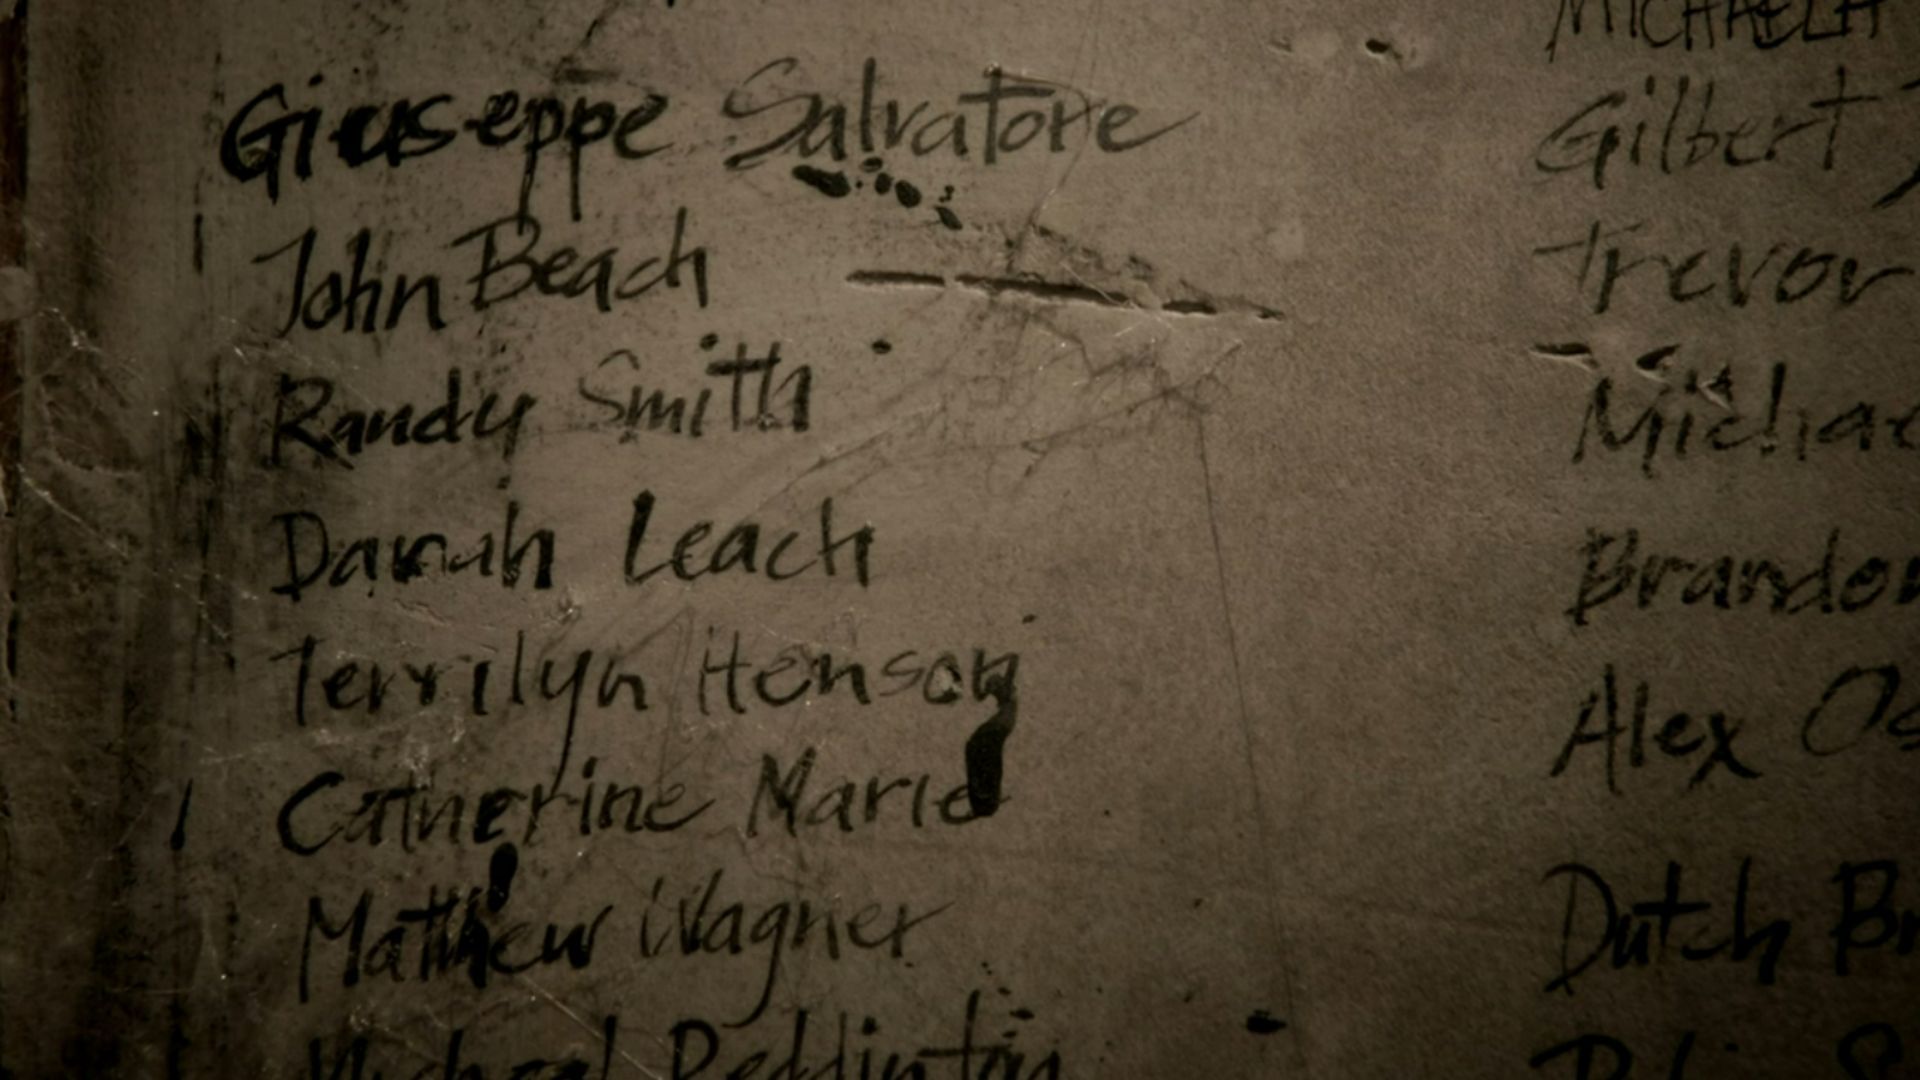 Giuseppe Salvatore
John Beach
Randy Smith
Danah Leach
Terrilyn Henson
Catherine Marie
Matthew Wagner
Michael Peddington
MICHAELA
Gilbert
Trevor
Michae
Brandon
Alex Os
Dutch Br